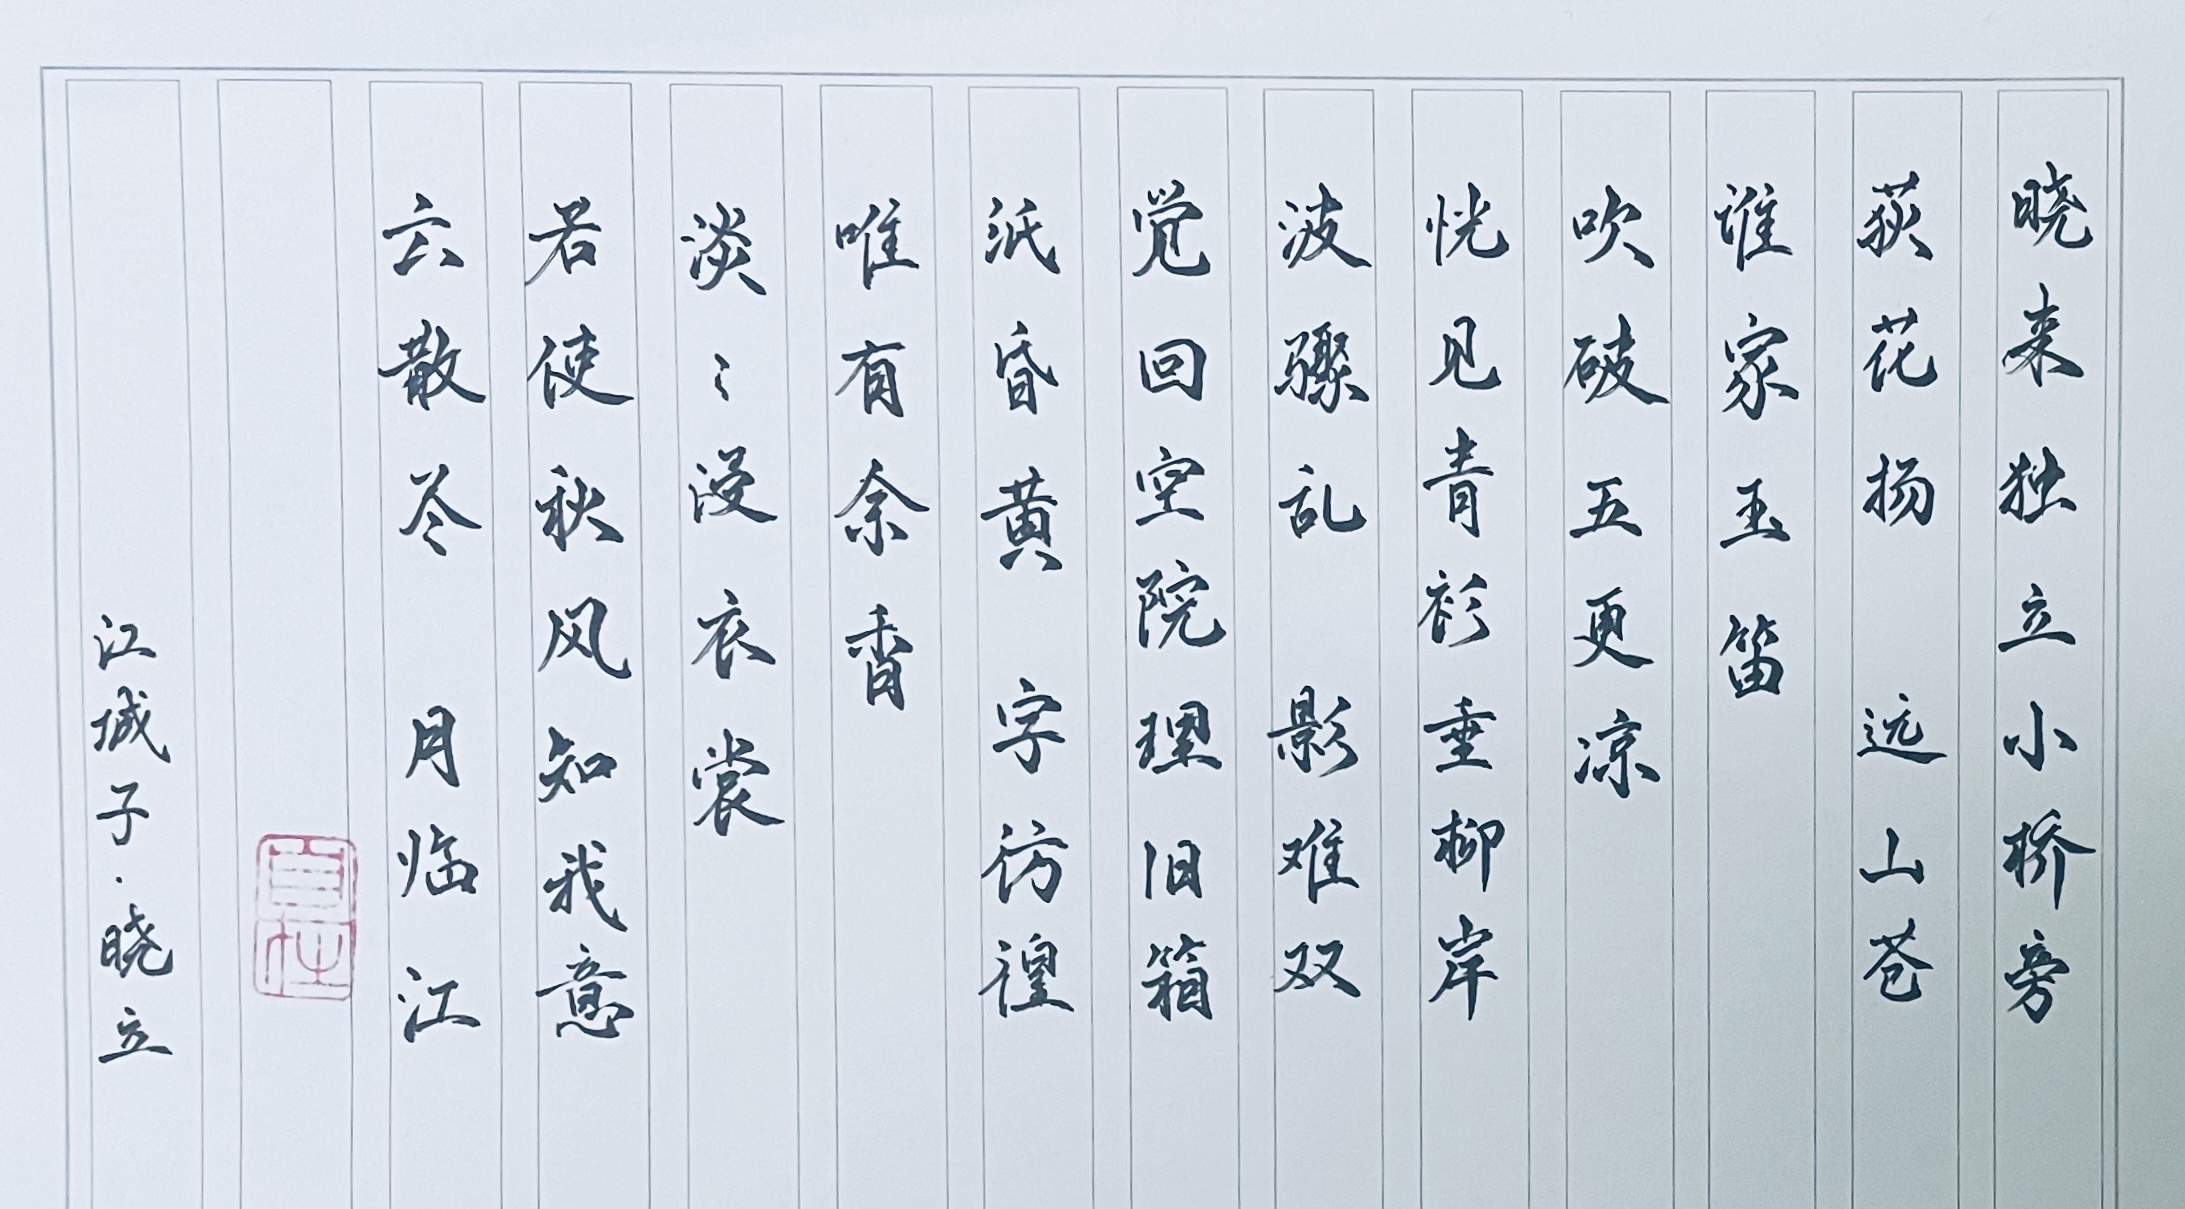 晓来独立小桥旁
荻花扬 远山苍
谁家玉笛
吹破五更凉
恍见青衫垂柳岸
波骤乱 影难双
觉回空院理旧箱
纸昏黄 字彷徨
唯有余香
淡〻浸衣裳
若使秋风知我意
云散尽 月临江
江城子·晓立